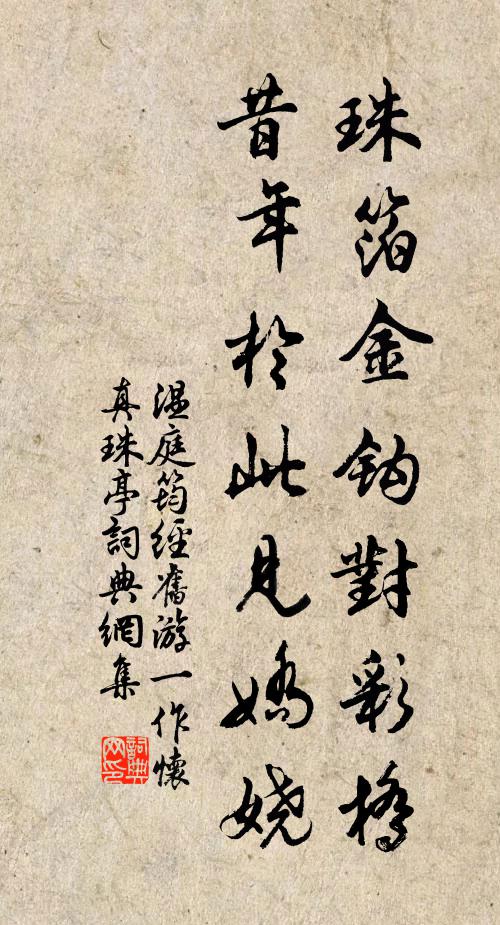 珠箔金鈎對彩橋
昔年於此見嬌嬈
溫庭筠經舊游一作懷
真珠亭詞典網集
詞典网印